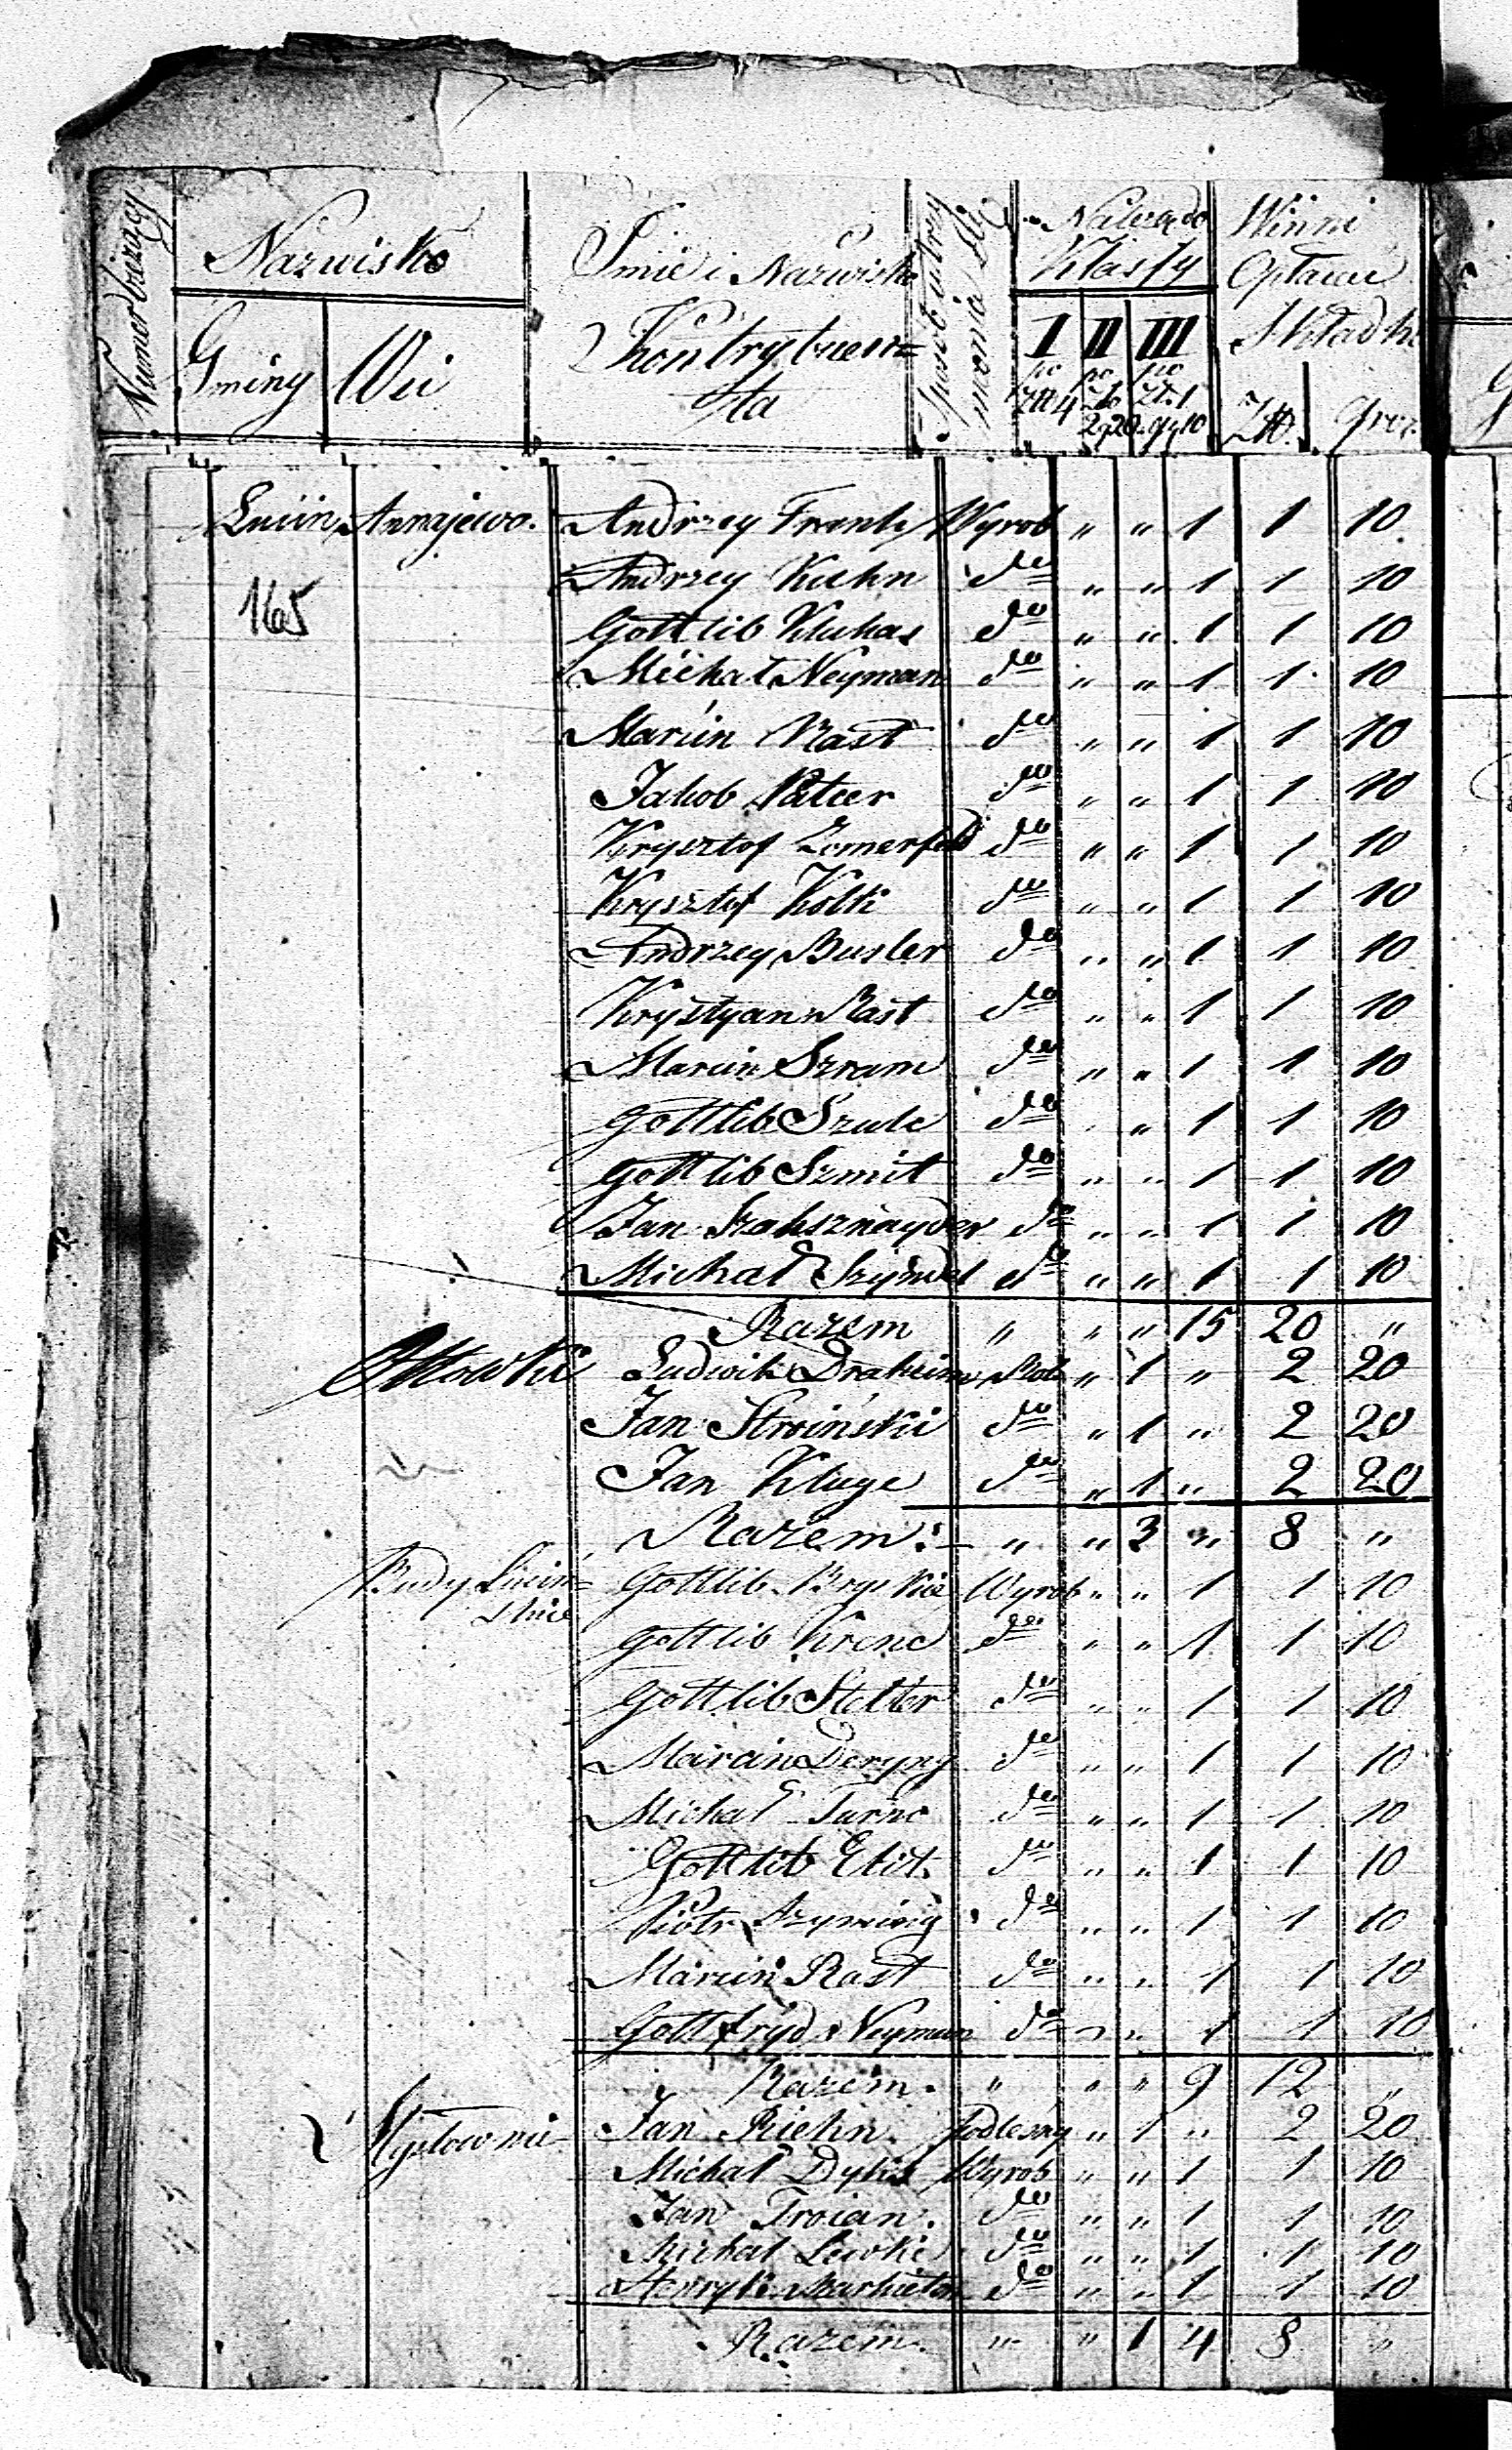 Numer bieżący
Nazwisko
Gminy Wsi
Imie i Nazwisko
Kontrybuen=
ta
Sposób utrzy
mania się
Należą do
Klassy
I II III
po po po
Złt 4 Zło Zł. 1
2 g 20 gr 10
Winni
Opłacać
Składki
Złt. Grosz.
Luiin Annajewo. Andrzey Frank Wyrob " " 1 1 10
165 Andrzey Kuhn do " " 1 1 10
Gottlib Klukas do " " 1 1 10
Michał Neyman do " " 1 1 10
Marcin Rast do " " 1 1 10
Jakob do " " 1 1 10
Krysztof Zomerfeld do " " 1 1 10
Krysztof Koltz do " " 1 1 10
Andrzey Busler do " " 1 1 10
Krystyan Rast do " " 1 1 10
Marcin Szram do " " 1 1 10
Gottlib Szulc do " " 1 1 10
Gottlib Szmit do " " 1 1 10
Jan Szaksznayder do " " 1 1 10
Michał Szyndel do " " 1 1 10
Razem " " " 15 20 "
Ludwik Draheim Rol " 1 " 2 20
Jan Stroiński do " 1 " 2 20
Jan Kluge do " 1 " 2 20
Razem: " " 3 " 8 "
Budy Luiin=
skie
Gottlib Wyrob " " 1 1 10
Gottlib Krenc do " " 1 1 10
Gottlib Stelter do " " 1 1 10
Marcin Deryng do " " 1 1 10
Michał Turno do " " 1 1 10
Gottlib Elit. do " " 1 1 10
Piotr Szyming do " " 1 1 10
Marcin Rast do " " 1 1 10
Gottfryd Neyman do " " 1 1 10
Razem. " " " 9 12 "
Jan Riehn. Podleśny " 1 " 2 20
Michał Dykis Wyrob " " 1 1 10
Jan Troian. do " " 1 1 10
Michał Lewki do " " 1 1 10
Henryk do " " 1 1 10
Razem. " " 1 4 8 "